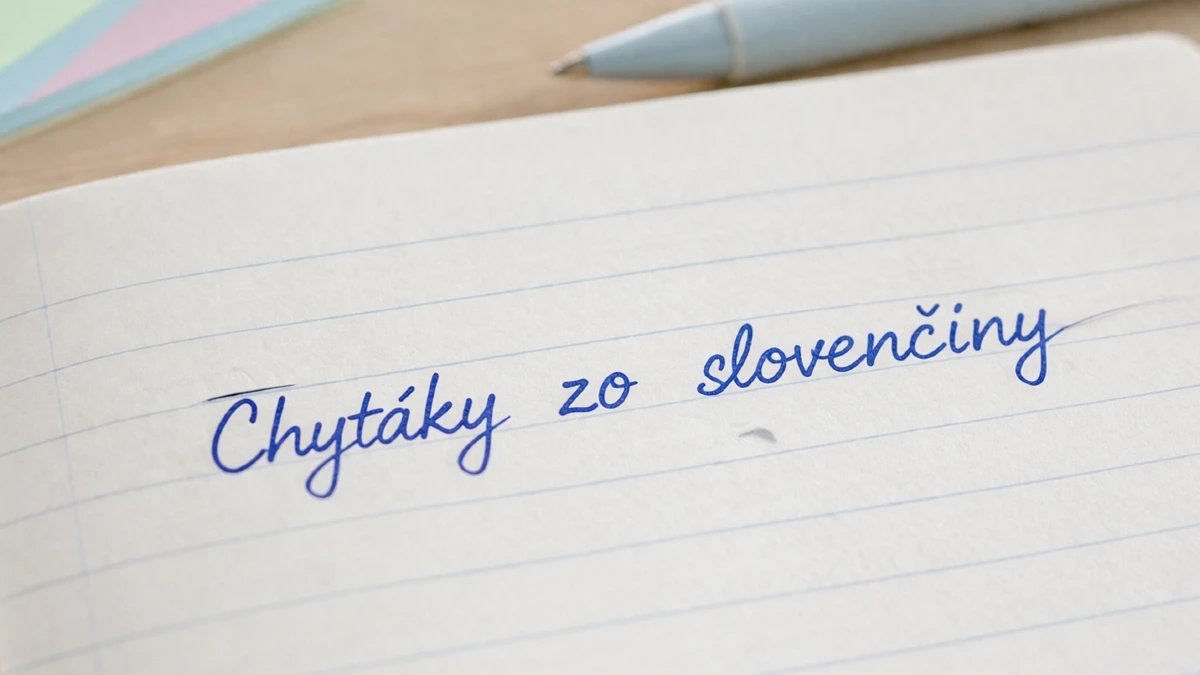 Chytáky zo slovenčiny